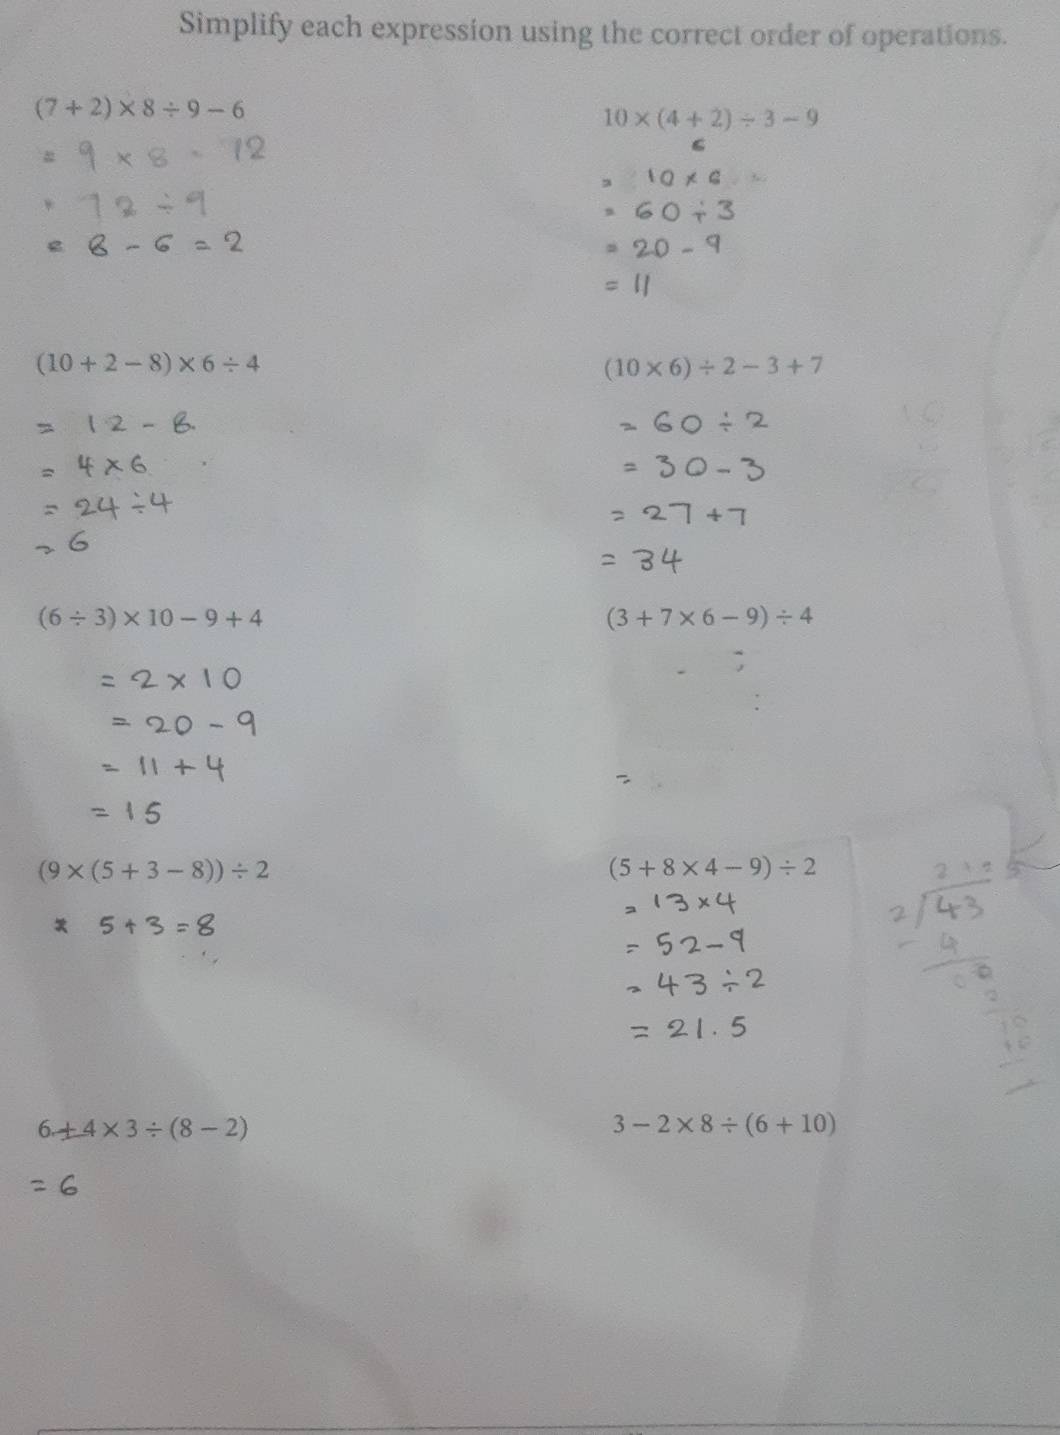 Simplify each expression using the correct order of operations.
(7 + 2) × 8 ÷ 9 − 6
= 9 × 8 = 72
= 72 ÷ 9
= 8 − 6 = 2
10 × (4 + 2) ÷ 3 − 9
6
= 10 × 6
= 60 ÷ 3
= 20 − 9
= 11
(10 + 2 − 8) × 6 ÷ 4
= 12 − 8
= 4 × 6
= 24 ÷ 4
= 6
(10 × 6) ÷ 2 − 3 + 7
= 60 ÷ 2
= 30 − 3
= 27 + 7
= 34
(6 ÷ 3) × 10 − 9 + 4
= 2 × 10
= 20 − 9
= 11 + 4
= 15
(3 + 7 × 6 − 9) ÷ 4
=
(9 × (5 + 3 − 8)) ÷ 2
5 + 3 = 8
(5 + 8 × 4 − 9) ÷ 2
= 13 × 4
= 52 − 9
= 43 ÷ 2
= 21.5
2 43
− 4
6 + 4 × 3 ÷ (8 − 2)
= 6
3 − 2 × 8 ÷ (6 + 10)